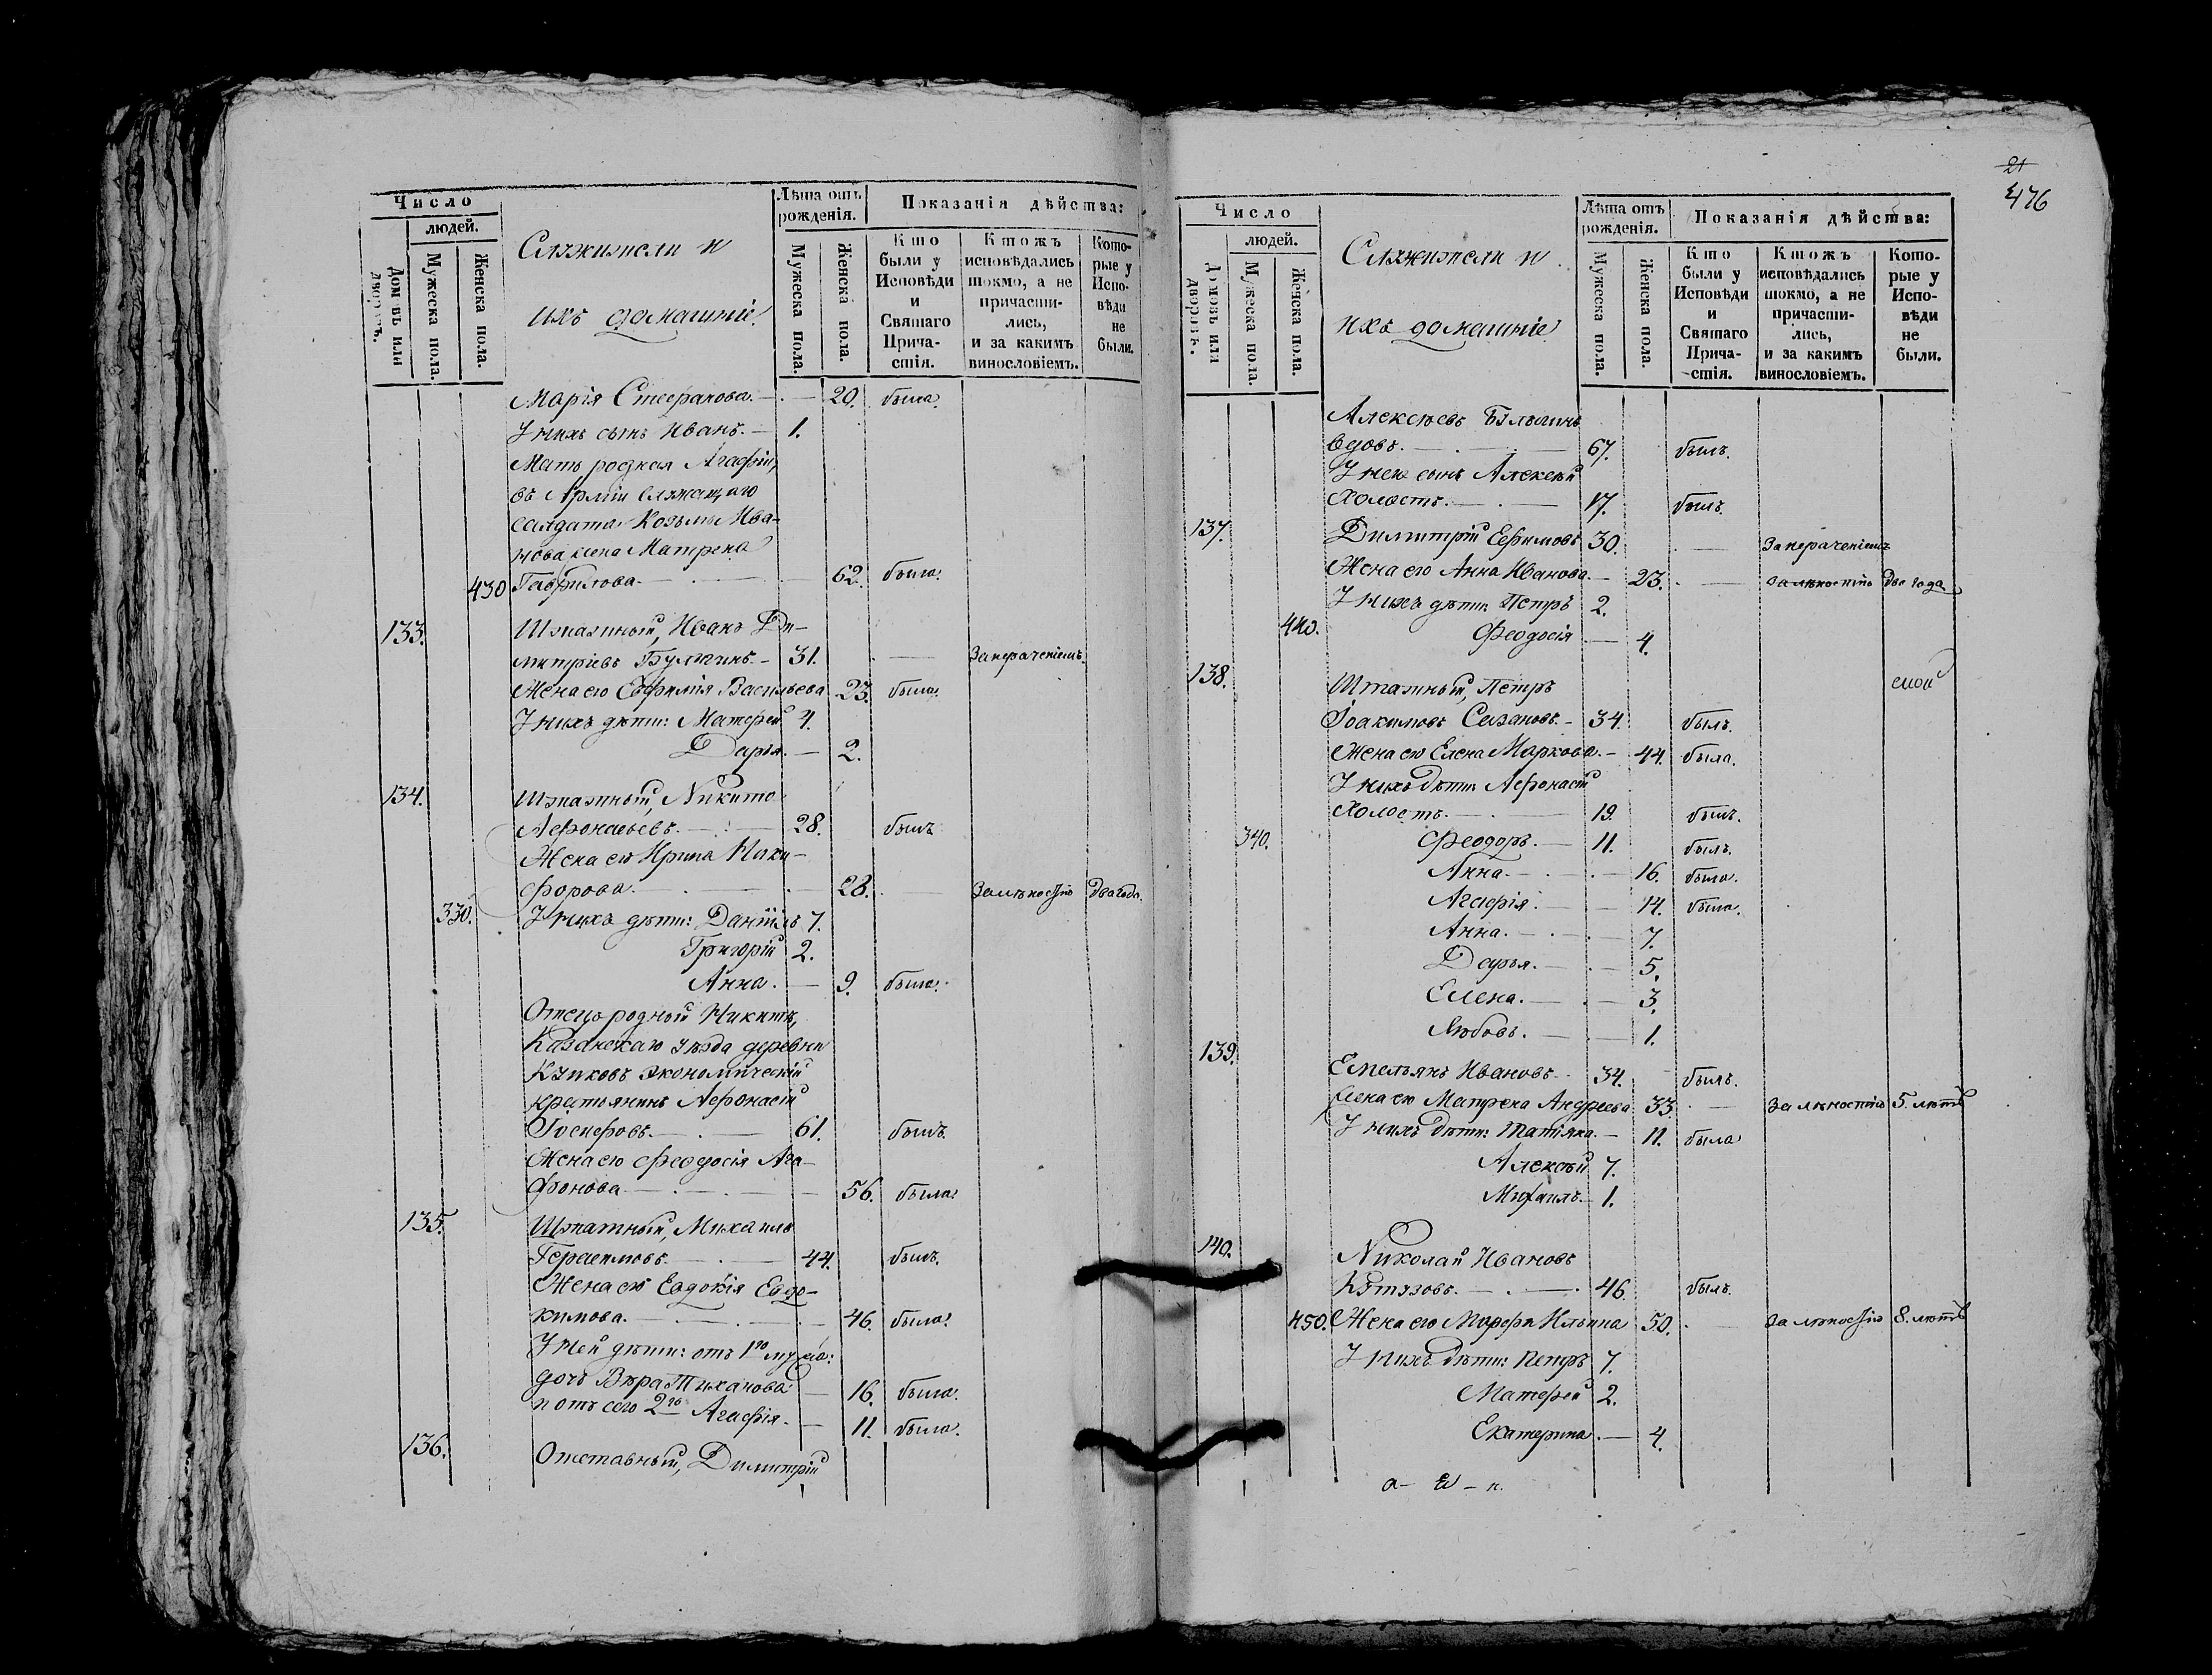 Число
людей.
Домовъ или дворовъ.
Мужеска пола.
Женска пола.
Служители и
ихъ домашніе.
Лѣта отъ рожденія.
Мужеска пола.
Женска пола.
Показанія дѣйства:
Кто были у Исповѣди и Святаго Причастія.
Ктожъ исповѣдались токмо, а не причастились, и за какимъ винословіемъ.
Которые у Исповѣди не были.
Марія Стефанова. — 20. была.
У нихъ сынъ Иванъ. — 1.
Мать родная Агафіи,
въ Арміи служащаго
солдата Козьмы Ива-
нова жена Матрена
430 Гаврилова. — 62. была.
133. Штатный, Иванъ Ди-
митріевъ Булыгинъ. — 31. — За нераченіемъ.
Жена его Евфимія Васильева 23. была.
У нихъ дѣти: Матфей 4.
Дарья. — 2.
134. Штатный, Никита
Афонасьевъ. — 28. былъ
Жена его Ирина Ники-
форова. — 28. — За лѣностію два года.
330. У нихъ дѣти: Даніилъ 7.
Григорій 2.
Анна. — 9. была.
Отецъ родной Никиты,
Казанскаго уѣзда деревни
экономическій
крестьянинъ Афонасій
Іосифовъ. — 61. былъ.
Жена его Феодосія Ага-
фонова — 56. была.
135. Штатный, Михаилъ
Герасимовъ. — 44. былъ.
Жена его Евдокія Евдо-
кимова. — 46. была.
У ней дѣти: отъ 1го мужа:
дочь Вѣра Тиханова — 16. была.
и отъ сего 2го Агафія. — 11. была.
136. Отставный, Димитрій
21
476
Число
людей.
Домовъ или дворовъ.
Мужеска пола.
Женска пола.
Служители и
ихъ домашніе.
Лѣта отъ рожденія.
Мужеска пола.
Женска пола.
Показанія дѣйства:
Кто были у Исповѣди и Святаго Причастія.
Ктожъ исповѣдались токмо, а не причастились, и за какимъ винословіемъ.
Которые у Исповѣди не были.
Алексѣевъ Булыгинъ
вдовъ. — 67. былъ.
У него сынъ Алексѣй
холостъ. — 17. былъ.
137. Димитрій Ефимовъ 30. — За нераченіемъ
Жена его Анна Иванова. — 23. — за лѣностію два года
У нихъ дѣти: Петръ 2.
440. Феодосія — 4.
138. Штатный, Петръ
Іоакимовъ Сазановъ. — 34. былъ.
Жена его Елена Маркова. — 44. была.
У нихъ дѣти: Афонасій
холостъ. — 19. былъ.
340. Феодоръ. — 11. былъ.
Анна. — 16. была.
Агафія. — 14. была.
Анна. — 7.
Дарья. — 5.
Елена. — 3.
Любовь. — 1.
139. Емельянъ Ивановъ. 34. былъ.
Жена его Матрена Андреева 33. — За лѣностію 5. лѣтъ
У нихъ дѣти: Татіяна. — 11. была
Алексѣй 7.
Михаилъ. — 1.
140. Николай Ивановъ
Кутузовъ. — 46. былъ.
450. Жена его Марфа Ильина 50. — за лѣностію 8. лѣтъ
У нихъ дѣти: Петръ 7.
Матфей 2.
Екатерина. — 4.